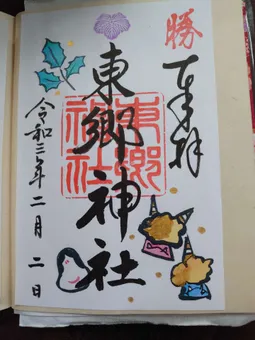 勝
奉拝
東郷神社
東郷神社
令和三年二月二日